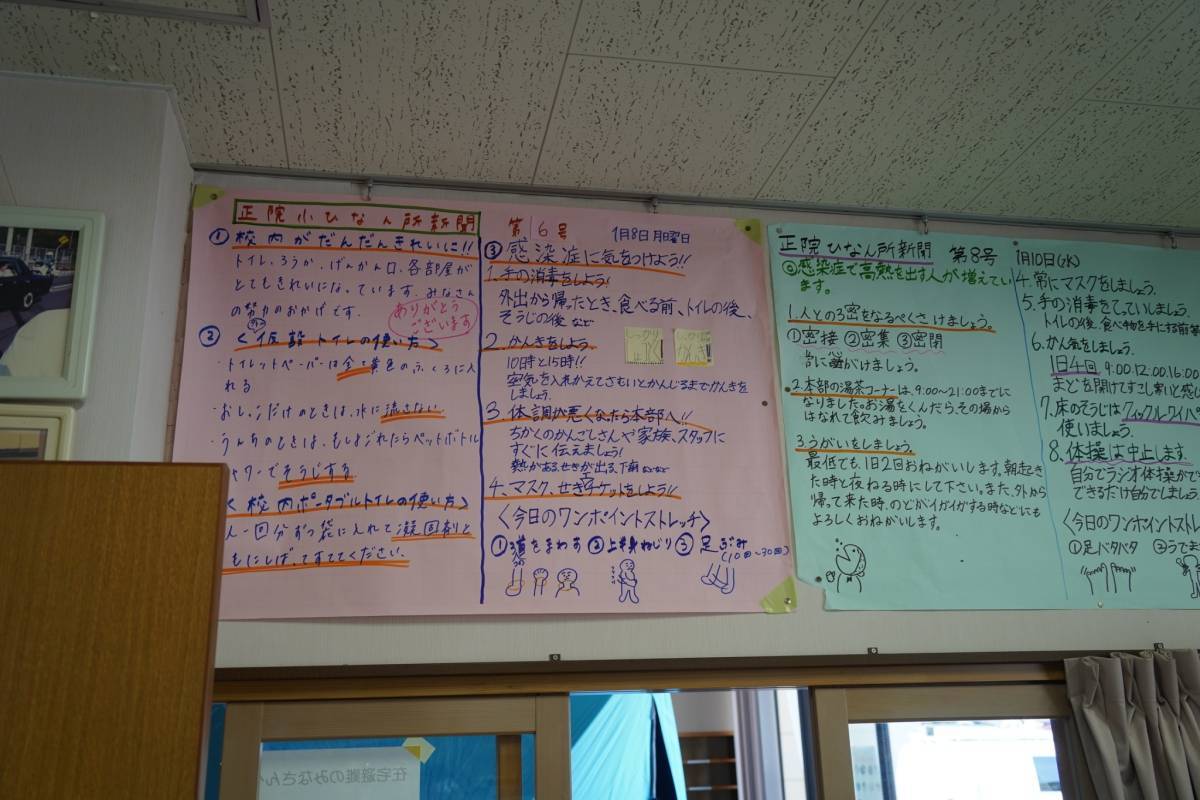 正院小ひなん所新聞
第6号
1月8日月曜日
① 校内がだんだんきれいに!!
トイレ、ろうか、げんかん口、各部屋が
とてもきれいになっています。みなさん
の努力のおかげです。
ありがとう
ございます
② 〈仮設トイレの使い方〉
・トイレットペーパーは全て黄色のふくろに入
れる
・おしっこだけのときは、水に流さない
・うんちのときは、もしよごれたらペットボトル
シャワーでそうじする
〈校内ポータブルトイレの使い方〉
一人一回分ずつ袋に入れて凝固剤と
ともにしばってすててください。
③ 感染症に気をつけよう!!
1.手の消毒をしよう!
外出から帰ったとき、食べる前、トイレの後、
そうじの後 など
2.かんきをしよう
10時と15時!!
空気を入れかえてさむいとかんじるまでかんきを
しましょう。
3.体調が悪くなったら本部へ!!
ちかくのかんごしさんや家族、スタッフに
すぐに伝えましょう!
熱がある、せきが出る、下痢などなど
4.マスク、せきエチケットをしよう!!
〈今日のワンポイントストレッチ〉
①頭をまわす ②上半身ねじり ③足ぶみ
(10回〜30回)
正院ひなん所新聞 第8号 1月10日(水)
◎感染症で高熱を出す人が増えてい
ます。
1.人との3密をなるべくさけましょう。
①密接 ②密集 ③密閉
心がけましょう。
2.本部の湯茶コーナーは、9:00〜21:00までに
なりました。お湯をくんだらその場から
はなれて飲みましょう。
3.うがいをしましょう。
最低でも、1日2回おねがいします。朝起き
た時と夜ねる時にして下さい。また、外から
帰って来た時、のどがイガイガする時などにも
よろしくおねがいします。
4.常にマスクをしましょう。
5.手の消毒をていしましょう。
トイレの後、食べ物を手にする前等
6.かん気をしましょう。
1日4回 9:00.12:00.16:00
まどを開けてすこし寒いと感
7.床のそうじはクイックルワイパ
使いましょう。
8.体操は中止します。
自分でラジオ体操がで
できるだけ自分でしましょう
〈今日のワンポイントスト
①足バタバタ ②うでま
在宅避難のみなさんへ